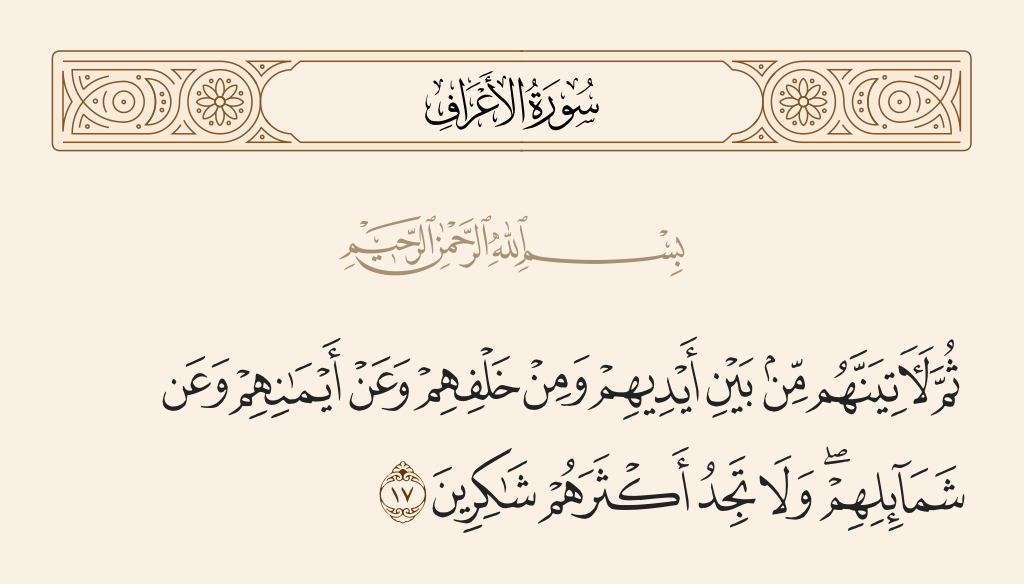 سُورَةُ الأَعْرَافِ
بِسْمِ ٱللَّهِ ٱلرَّحْمَٰنِ ٱلرَّحِيمِ
ثُمَّ لَـَٔاتِيَنَّهُم مِّنۢ بَيْنِ أَيْدِيهِمْ وَمِنْ خَلْفِهِمْ وَعَنْ أَيْمَـٰنِهِمْ وَعَن
شَمَآئِلِهِمْ ۖ وَلَا تَجِدُ أَكْثَرَهُمْ شَـٰكِرِينَ ١٧